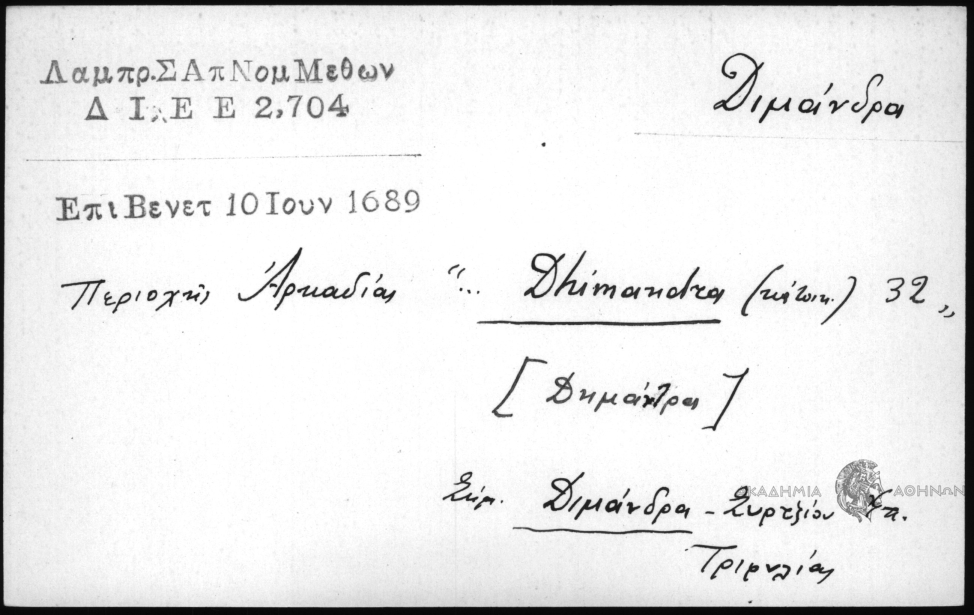 Λαμπρ.ΣΑπΝομΜεθων
Διμάνδρα
Δ Ι.Ε Ε 2,704
ΕπιΒενετ 10 Ιουν 1689
Περιοχῆς Ἀρκαδίας "... Dhimandra (κάτοικ.) 32 "
[Δημάντρα]
Σήμ. Διμάνδρα - Συρτζίου
Τριφυλίας
ΑΚΑΔΗΜΙΑ ΑΘΗΝΩΝ